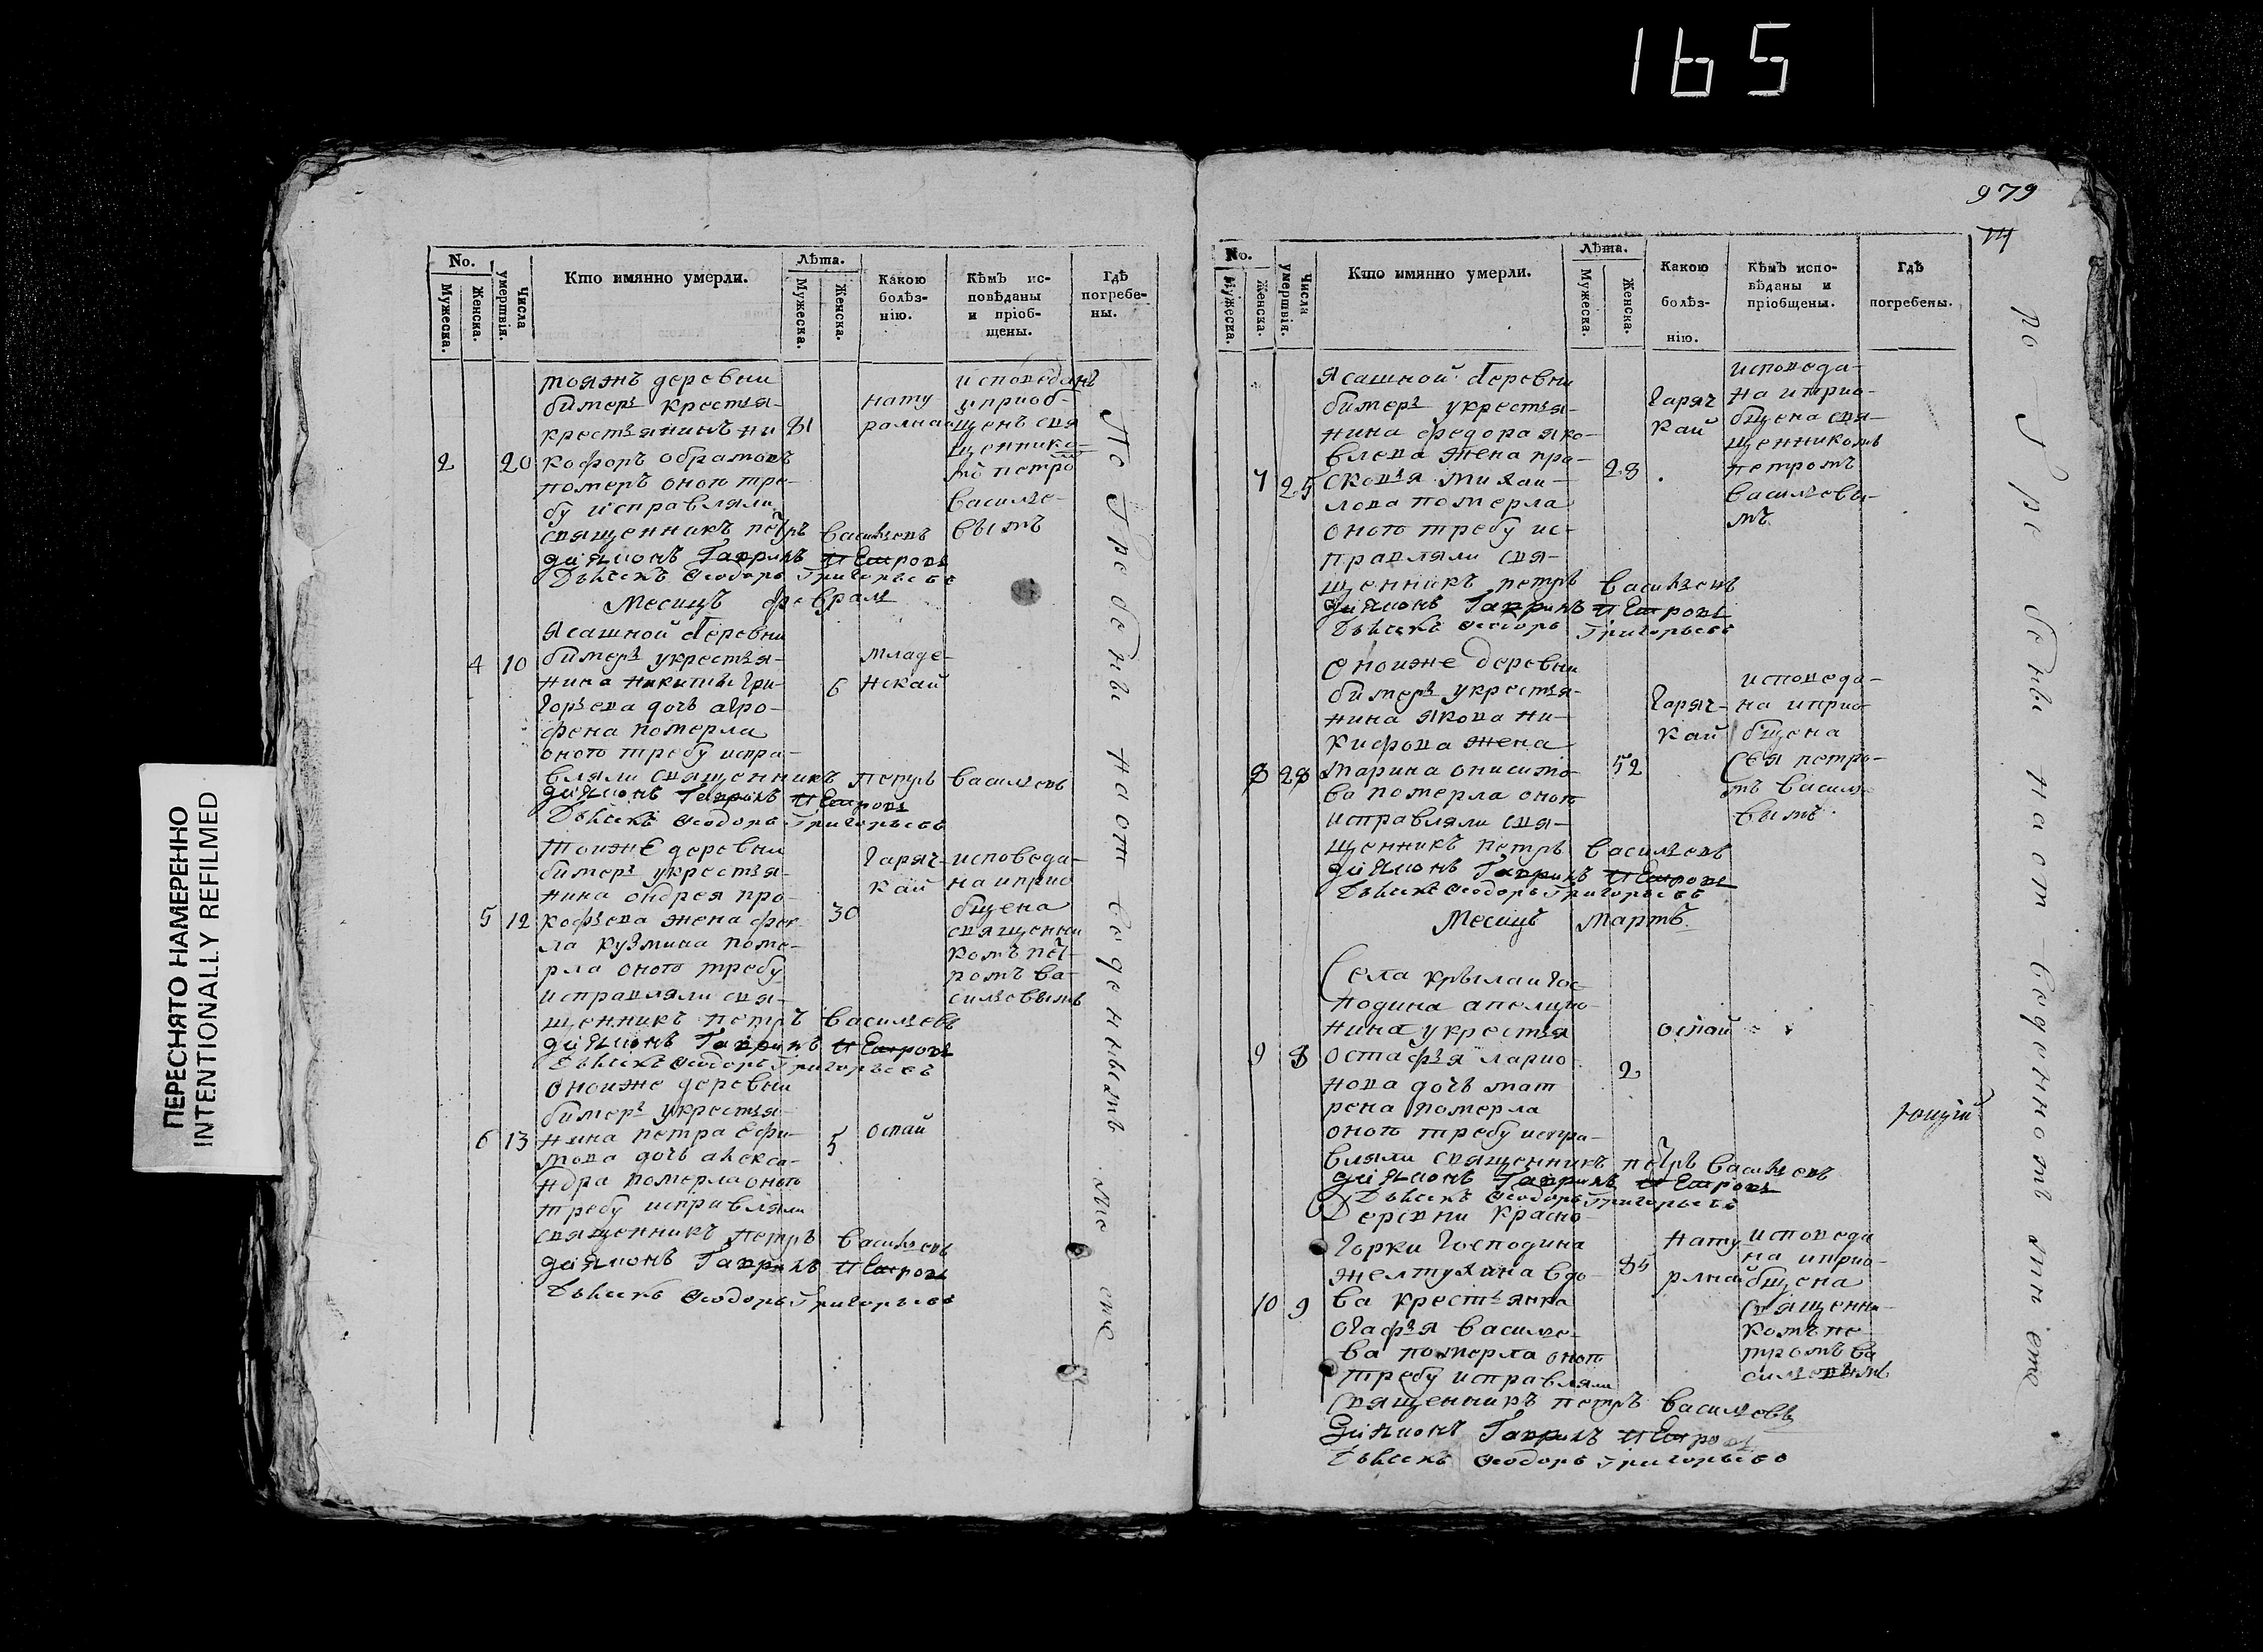 165
ПЕРЕСНЯТО НАМЕРЕННО
INTENTIONALLY REFILMED
No.
Мужеска.
Женска.
Числа умертвія.
Кто имянно умерли.
Лѣта.
Мужеска.
Женска.
Какою болѣз-
нію.
Кѣмъ ис-
повѣданы
и пріоб-
щены.
Гдѣ
погребе-
ны.
тояжъ деревни
бимеръ крестья-
крестьянинъ ни 81
2 20 кофоръ обрамовъ
померъ оною тре-
бу исправляли
священникъ петръ васильевъ
діяконъ Гаврилъ Петровъ
Дьячекъ Феодоръ Григорьевъ
нату
ралная
исповеданъ
и приоб-
щенъ свя
щеннико-
мъ петро
василье-
вымъ
Месицъ февраль
Ясашной деревни
4 10 бимеръ укрестья-
нина никиты гри- 6
горьева дочь агро-
фена померла
оною требу испра-
вляли священникъ петръ васильевъ
діяконъ Гаврилъ Петровъ
Дьячекъ Феодоръ Григорьевъ
младе-
нкай
тоиже деревни
бимеръ укрестья-
нина ондрея про-
5 12 кофьева жена фек 30
ла кузмина поме-
рла оною требу
исправляли свя-
щенникъ петръ васильевъ
діяконъ Гаврилъ Петровъ
Дьячекъ Феодоръ Григорьевъ
гаряч-
кай
исповеда-
на иприо
бщена
священни
комъ пет-
ромъ ва-
сильевымъ
оноиже деревни
бимеръ укрестья-
6 13 нина петра ефи- 5
мова дочь алекса-
ндра померла оною
требу исправляли
священникъ петръ васильевъ
діяконъ Гаврилъ Петровъ
Дьячекъ Феодоръ Григорьевъ
оспай
979
14
No.
Мужеска.
Женска.
Числа умертвія.
Кто имянно умерли.
Лѣта.
Мужеска.
Женска.
Какою
болѣз-
нію.
Кѣмъ испо-
вѣданы и
пріобщены.
Гдѣ
погребены.
Ясашной деревни
бимеръ укрестья-
нина федора яко-
влева жена пра-
7 25 сковья михаи- 28
лова померла
оною требу ис-
правляли свя-
щенникъ петръ васильевъ
діяконъ Гаврилъ Петровъ
Дьячекъ Феодоръ Григорьевъ
гаряч
кай
исповеда-
на иприо-
бщена свя-
щенникомъ
петромъ
васильевы-
мъ
оноиже деревни
бимеръ укрестья-
нина якова ни-
кифова жена
8 28 марина онисимо- 52
ва померла оною
исправляли свя-
щенникъ петръ васильевъ
діяконъ Гаврилъ Петровъ
Дьячекъ Феодоръ Григорьевъ
гаряч-
кай
исповеда-
на иприо-
бщена
свя петро-
мъ василь
вымъ
Месицъ мартъ
Села крылаи гос-
подина
нина укрестья
9 8 остафья ларио 2
нова дочь мат
рена померла
оною требу испра-
вляли священникъ петръ васильевъ
діяконъ Гаврилъ Петровъ
Дьячекъ Феодоръ Григорьевъ
оспай
Деревни красно-
горки господина
желтухина вдо- 85
10 9 ва крестьянка
огафья василье-
ва померла оною
требу исправляли
священникъ петръ васильевъ
діяконъ Гаврилъ Петровъ
Дьячекъ Феодоръ Григорьевъ
нату
рлнай
исповеда
на иприо-
бщена
священни-
комъ пе-
тромъ ва
сильевымъ